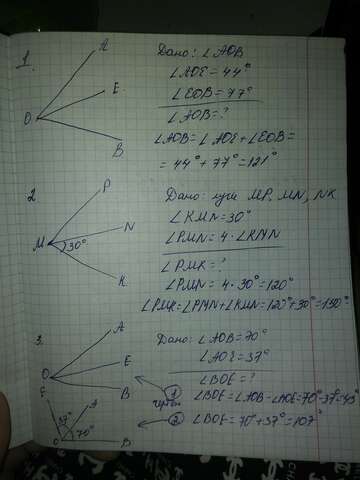 1.
A
E
O
B
Дано: ∠AOB
∠AOE = 44°
∠EOB = 77°
∠AOB = ?
∠AOB = ∠AOE + ∠EOB =
= 44° + 77° = 121°
2
P
N
M
30°
K
Дано: лучи MP, MN, NK
∠KMN = 30°
∠PMN = 4 · ∠KMN
∠PMK = ?
∠PMN = 4 · 30° = 120°
∠PMK = ∠PMN + ∠KMN = 120° + 30° = 150°
3.
A
E
O
B
Дано: ∠AOB = 70°
∠AOE = 37°
∠BOE = ?
1 ∠BOE = ∠AOB - ∠AOE = 70° - 37° =
E
A
37°
70°
O
B
2 ∠BOE = 70° + 37° = 107°